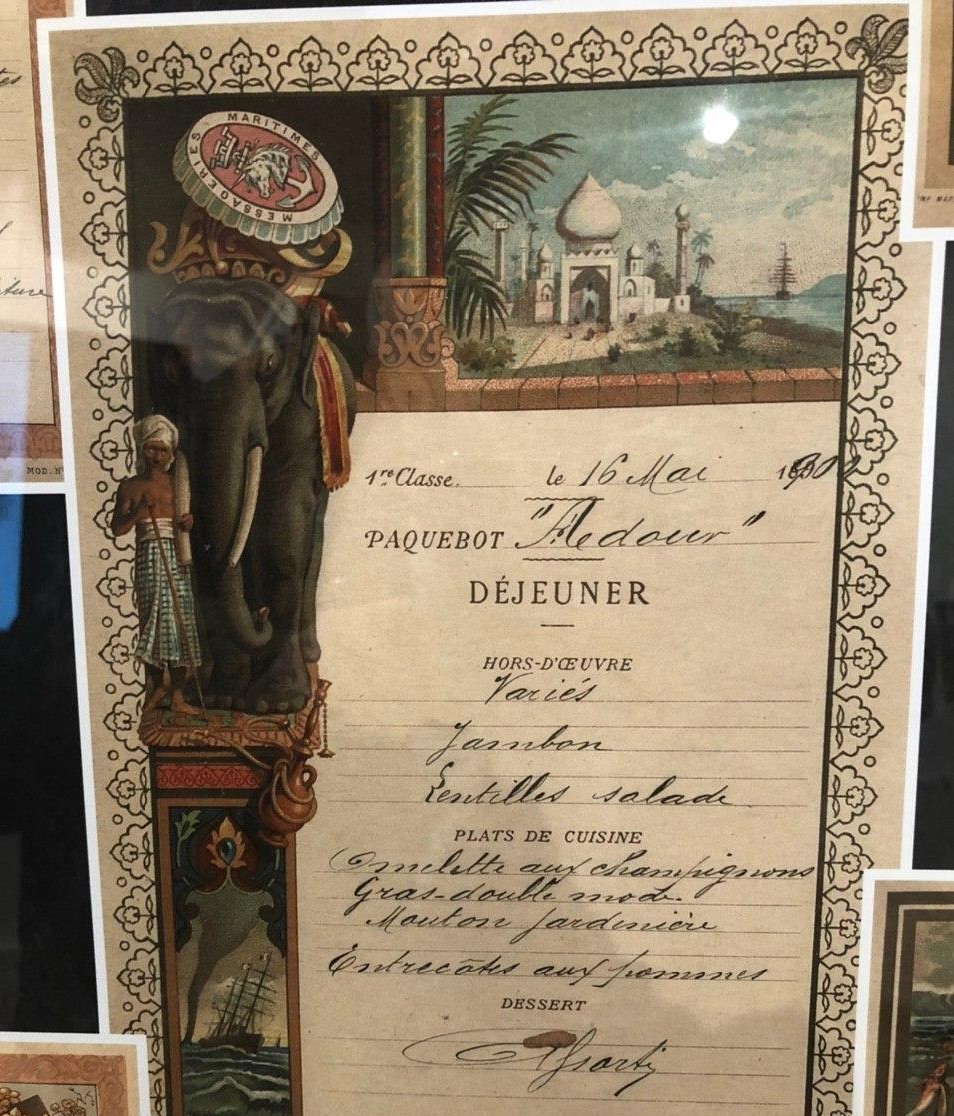 MESSAGERIES MARITIMES
M M
1re Classe. le 16 Mai
PAQUEBOT "Adour"
DÉJEUNER
HORS-D'ŒUVRE
Variés
Jambon
Lentilles salade
PLATS DE CUISINE
Omelette aux champignons
Gras-double mode.
Mouton Jardinière
Entrecôtes aux pommes
DESSERT
Assorti
MOD. N